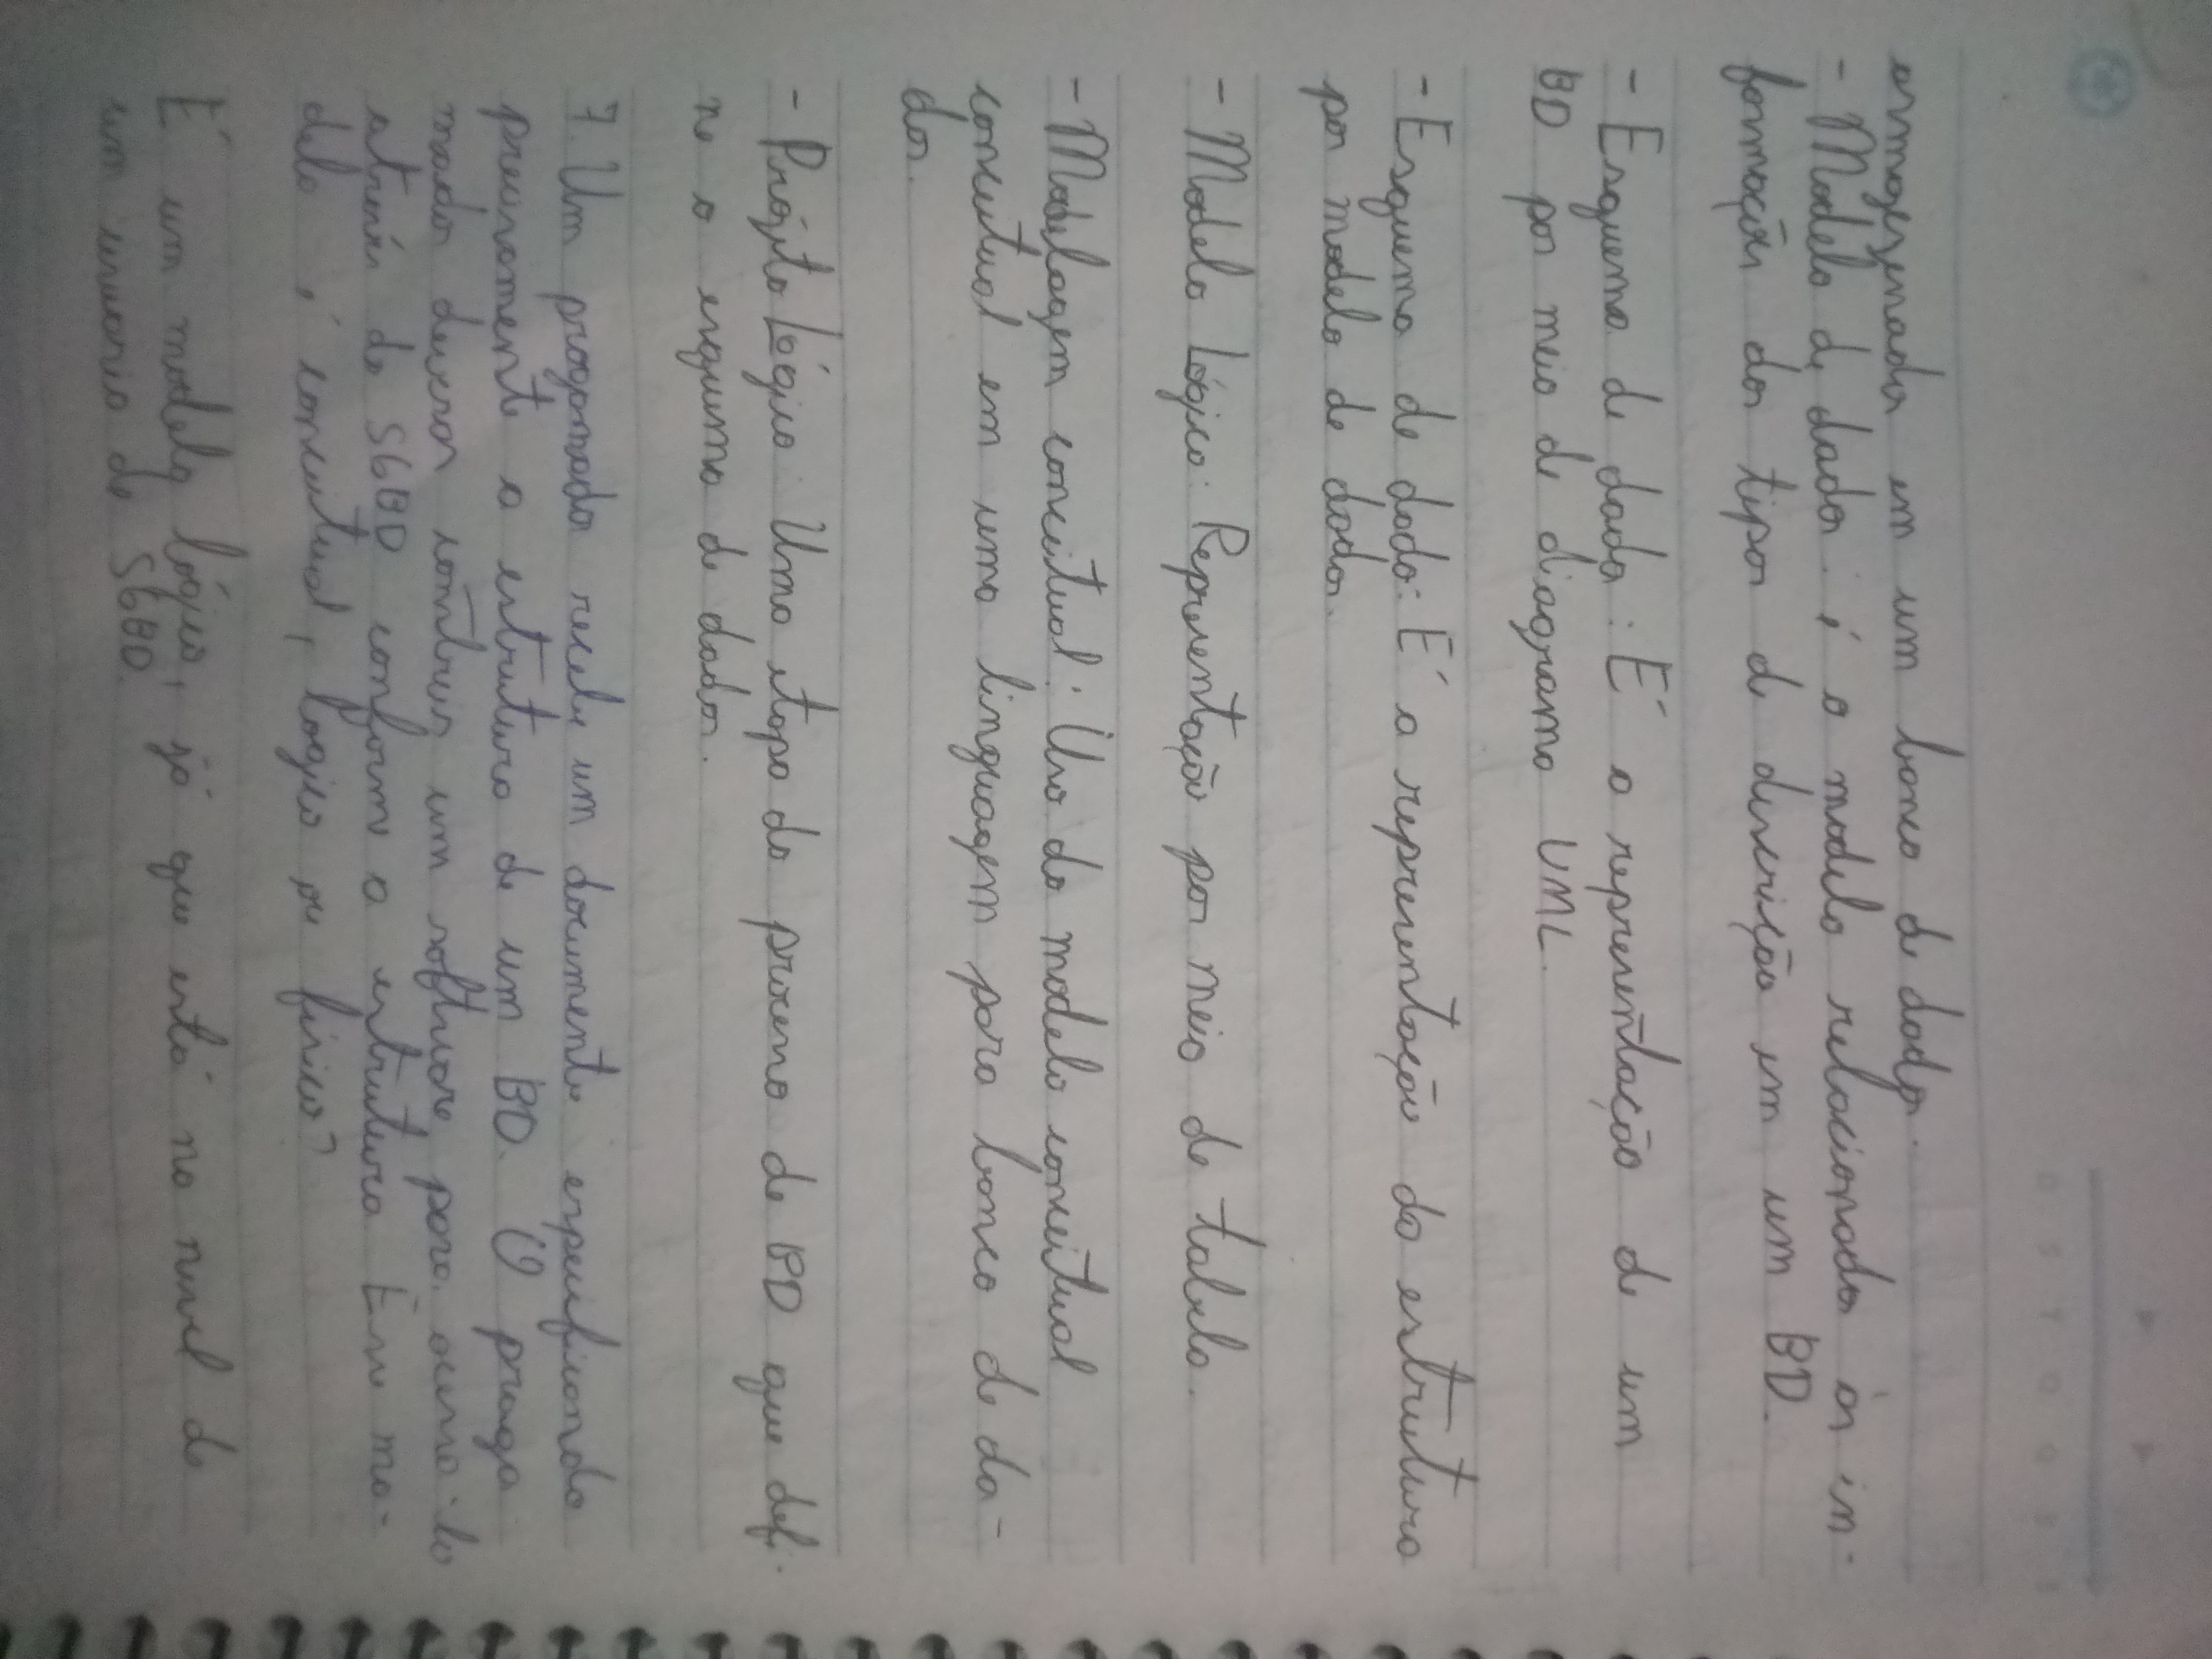 armazenados em um banco de dados.
- Modelo de dados: é o modelo relacionado às in-
formações dos tipos de descrição em um BD.
- Esquema de dados: É a representação de um
BD por meio de diagrama UML.
- Esquema de dado: É a representação da estrutura
por modelo de dados.
- Modelo Lógico: Representação por meio de tabela.
- Modelagem conceitual: Uso do modelo conceitual
conceitual em uma linguagem para banco de da-
dos.
- Projeto Lógico: Uma etapa do processo de BD que defi-
ne o esquema de dados.
7. Um programador recebe um documento especificando
precisamente a estrutura de um BD. O progra
mador deverá construir um software para acessá-lo
através do SGBD conforme a estrutura. Esse mo-
delo é conceitual, logico ou físico?
É um modelo lógico, já que está no nivel de
um usuario de SGBD.